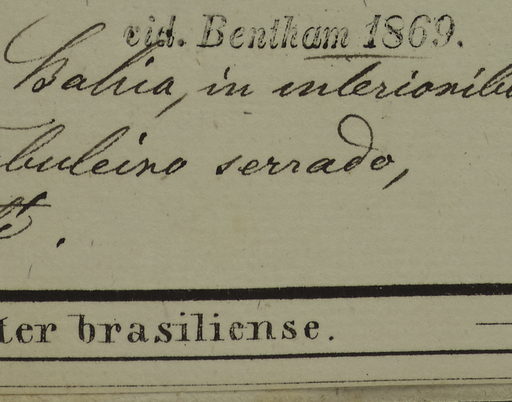 vid. Bentham 1869.
Bahia, in interioribu
buleiro serrado,
ter brasiliense.